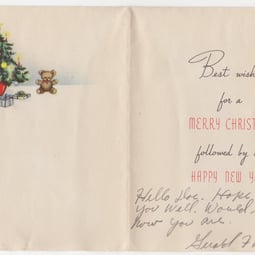 Best wish
for a
MERRY CHRIST
followed by
HAPPY NEW Y
Hello Doc. Hope
you Well. Would
now you are.